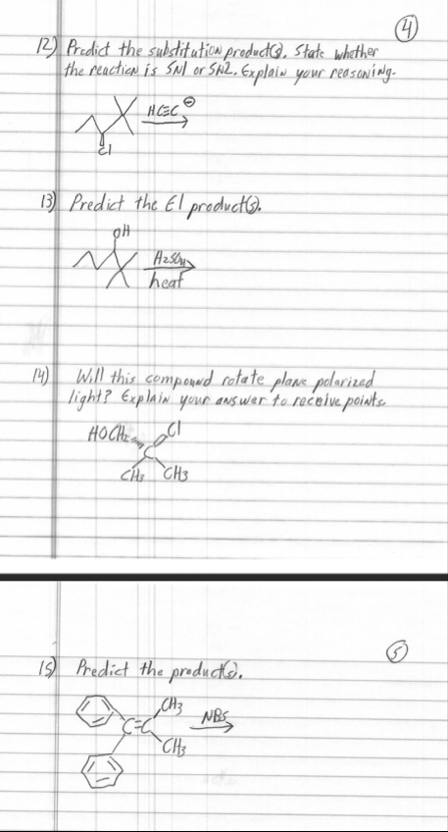 ④
12) Predict the substitution product(s). State whether
the reaction is SN1 or SN2. Explain your reasoning.
HC≡C⊖
Cl
13) Predict the E1 product(s).
OH
H2SO4
heat
14) Will this compound rotate plane polarized
light? Explain your answer to receive points.
HOCH2 Cl
C
CH3 CH3
⑤
15) Predict the product(s).
CH3
C=C NBS
CH3